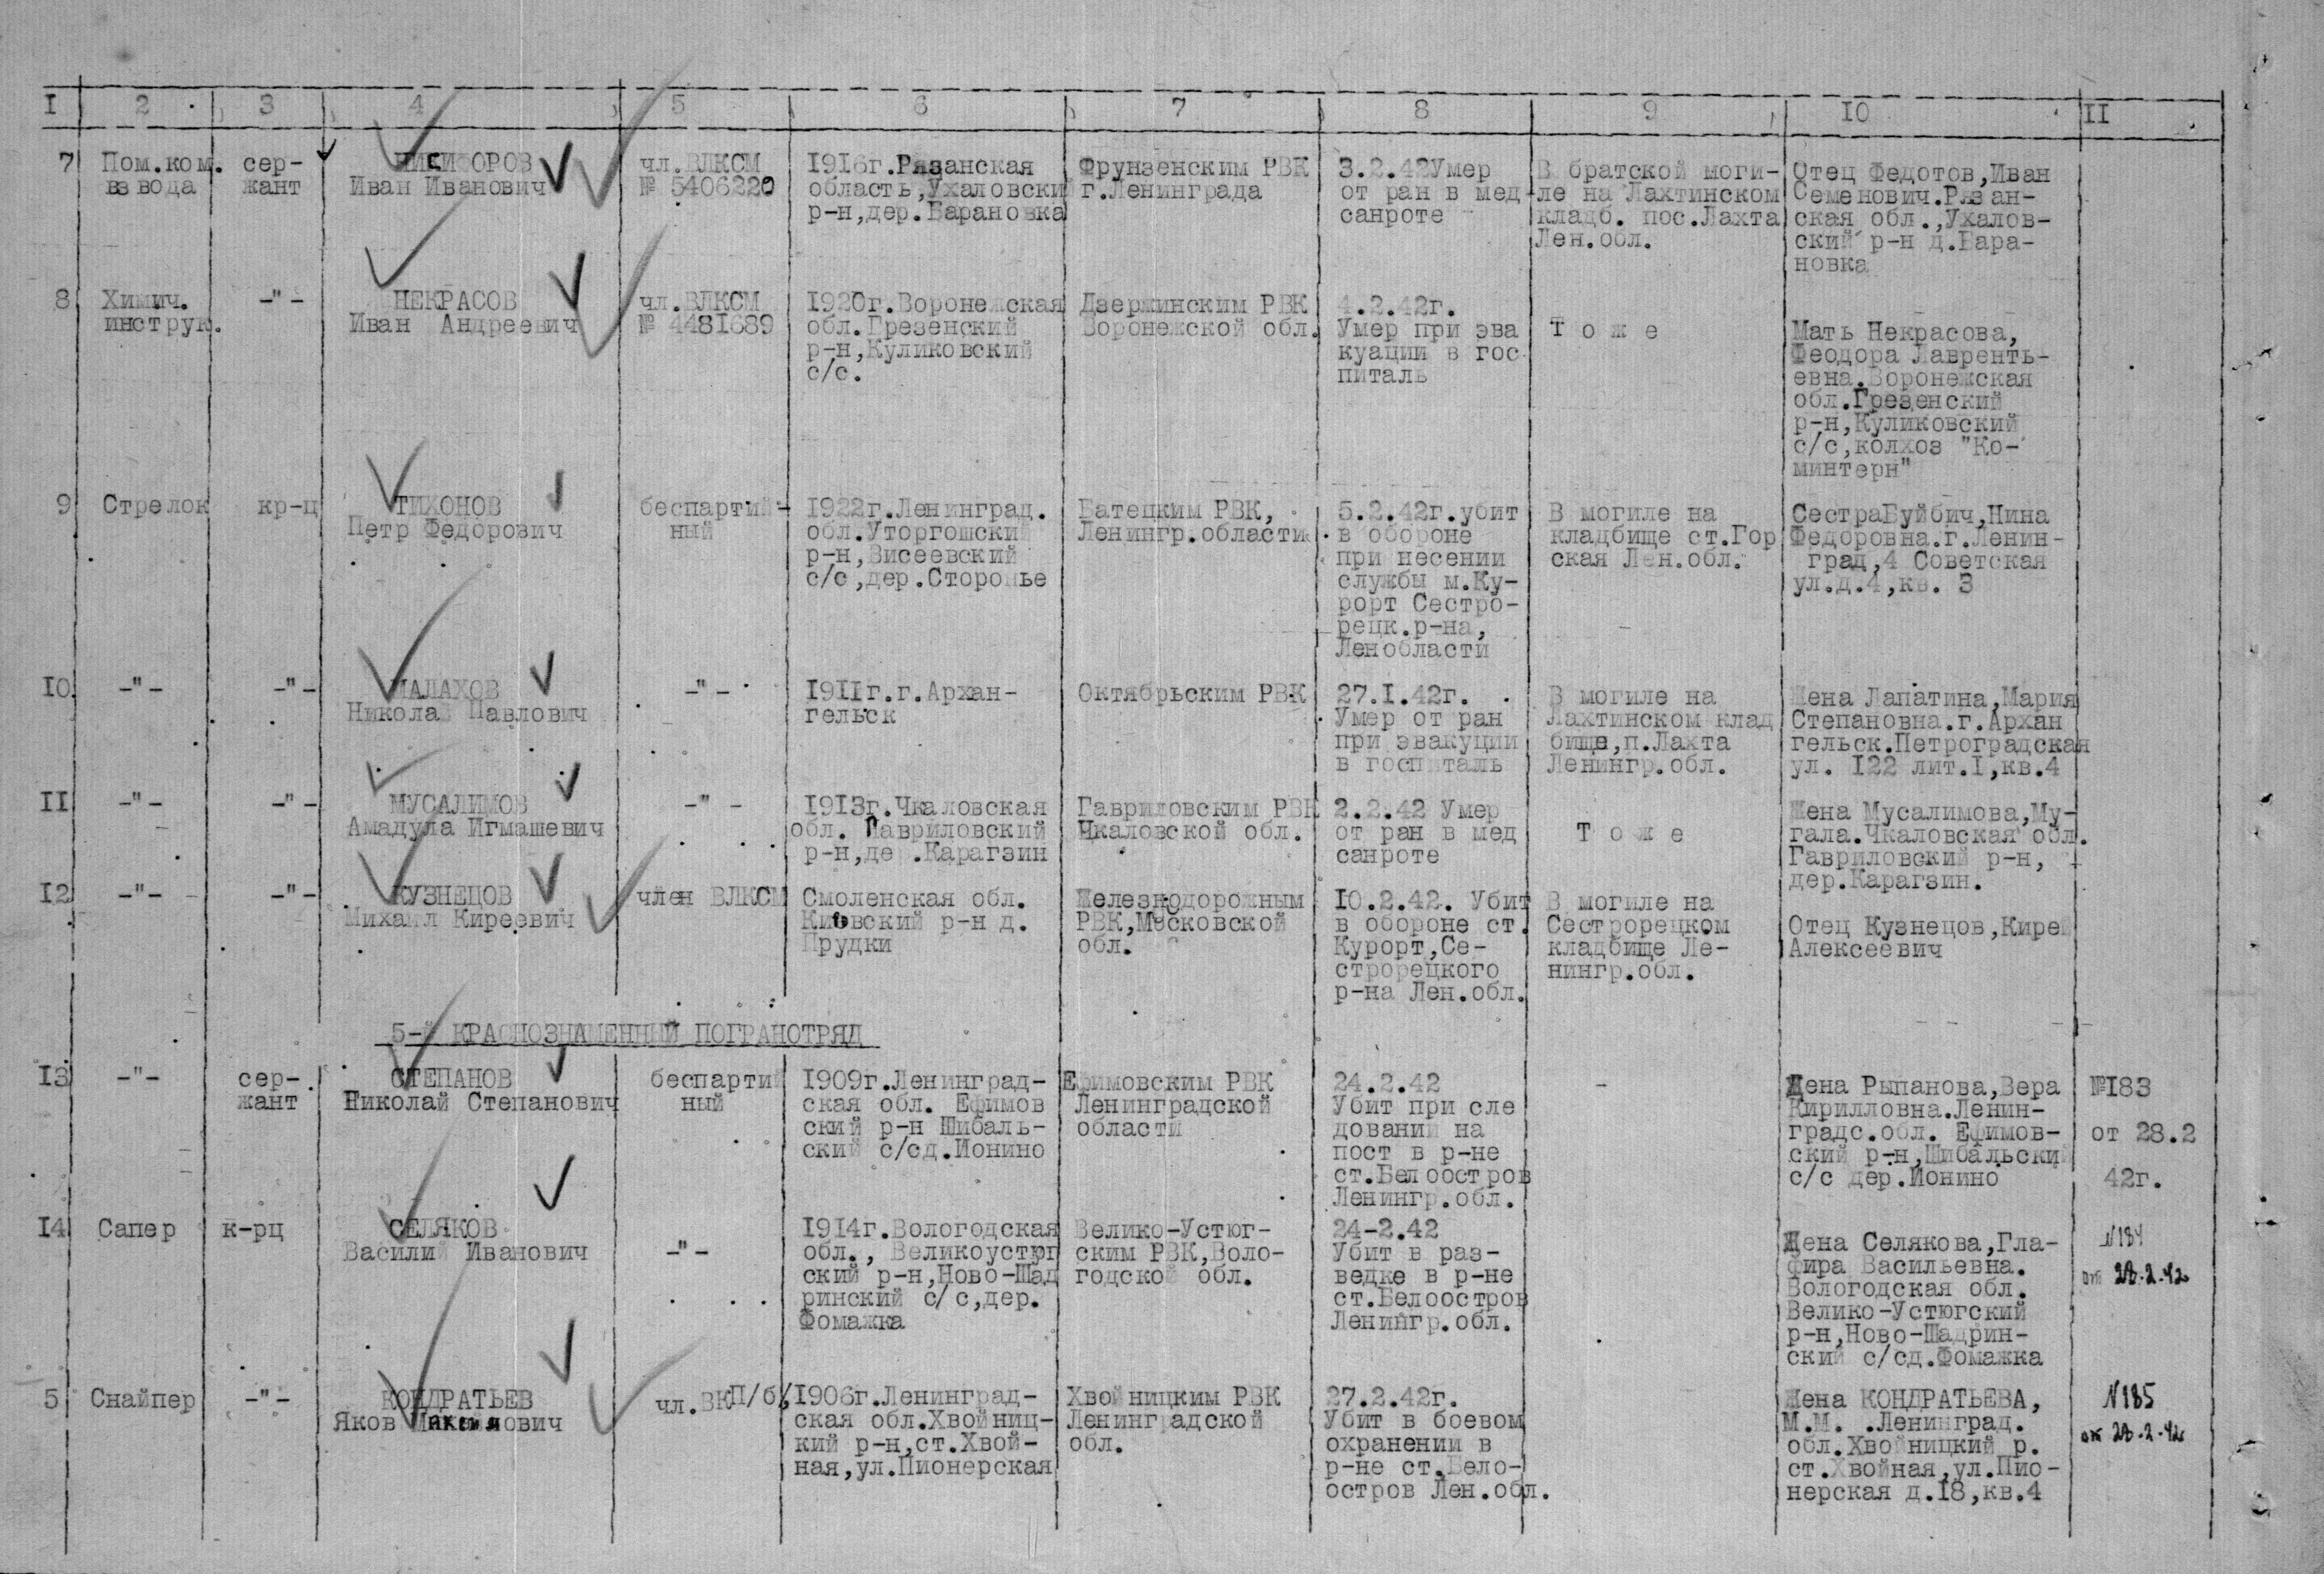 I 2 3 4 5 6 7 8 9 10 II
7 Пом.ком. взвода
сер-
жант
НИКИФОРОВ
Иван Иванович
чл.ВЛКСМ
№ 5406220
1916г.Рязанская
область,Ухаловский
р-н,дер.Барановка
Фрунзенским РВК
г.Ленинграда
3.2.42Умер
от ран в мед
санроте
В братской моги-
ле на Лахтинском
кладб. пос.Лахта
Лен.обл.
Отец Федотов,Иван
Семенович.Рязан-
ская обл.,Ухалов-
ский р-н д.Бара-
новка
8 Химич.
инструк.
-"-
НЕКРАСОВ
Иван Андреевич
чл.ВЛКСМ
№ 4481689
1920г.Воронежская
обл.Грезенский
р-н,Куликовский
с/с.
Дзержинским РВК
Воронежской обл.
4.2.42г.
Умер при эва
куации в гос
питаль
Т о ж е
Мать Некрасова,
Феодора Лаврентъ-
евна.Воронежская
обл.Грезенский
р-н,Куликовский
с/с,колхоз "Ко-
минтерн"
9 Стрелок
кр-ц
ТИХОНОВ
Петр Федорович
беспартий-
ный
1922г.Ленинград.
обл.Уторгошский
р-н,Висеевский
с/с,дер.Сторонье
Батецким РВК,
Ленингр.области.
5.2.42г.убит
в обороне
при несении
службы м.Ку-
рорт Сестро-
рецк.р-на,
Ленобласти
В могиле на
кладбище ст.Гор
ская Лен.обл.
СестраБуйбич,Нина
Федоровна.г.Ленин-
град,4 Советская
ул.д.4,кв. 3
10 -"-
-"-
МАЛАХОВ
Николай Павлович
-"-
1911г.г.Архан-
гельск
Октябрьским РВК
27.I.42г.
Умер от ран
при эвакуции
в госпиталь
В могиле на
Лахтинском клад
бище,п.Лахта
Ленингр.обл.
Жена Лапатина,Мария
Степановна.г.Архан
гельск.Петроградская
ул. I22 лит.I,кв.4
II -"-
-"-
МУСАЛИМОВ
Амадула Игмашевич
-"-
1913г.Чкаловская
обл. Гавриловский
р-н,дер.Карагзин
Гавриловским РВК
Чкаловской обл.
2.2.42 Умер
от ран в мед
санроте
Т о ж е
Жена Мусалимова,Му-
гала.Чкаловская обл.
Гавриловский р-н,
дер.Карагзин.
I2 -"-
-"-
КУЗНЕЦОВ
Михаил Киреевич
член ВЛКСМ
Смоленская обл.
р-н д.
Прудки
Железнодорожным
РВК,Московской
обл.
10.2.42. Убит
в обороне ст.
Курорт,Се-
строрецкого
р-на Лен.обл.
В могиле на
Сестрорецком
кладбище Ле-
нингр.обл.
Отец Кузнецов,Кирей
Алексеевич
5-й КРАСНОЗНАМЕННЫЙ ПОГРАНОТРЯД
I3 -"-
сер-
жант
СТЕПАНОВ
Николай Степанович
беспартий
ный
1909г.Ленинград-
ская обл. Ефимов
ский р-н Шибаль-
ский с/сд.Ионино
Ефимовским РВК
Ленинградской
области
24.2.42
Убит при сле
довании на
пост в р-не
ст.Белоостров
Ленингр.обл.
-
Жена Рыпанова,Вера
Кирилловна.Ленин-
градс.обл. Ефимов-
ский р-н,Шибальский
с/с дер.Ионино
№I83
от 28.2
42г.
I4 Сапер
к-рц
СЕЛЯКОВ
Василий Иванович
-"-
1914г.Вологодская
обл., Великоустюг
ский р-н,Ново-Шад
ринский с/с,дер.
Фомажка
Велико-Устюг-
ским РВК,Воло-
годской обл.
24-2.42
Убит в раз-
ведке в р-не
ст.Белоостров
Ленингр.обл.
Жена Селякова,Гла-
фира Васильевна.
Вологодская обл.
Велико-Устюгский
р-н,Ново-Шадрин-
ский с/сд.Фомажка
N184
от 28.2.42
5 Снайпер
-"-
КОНДРАТЬЕВ
Яков Максимович
чл.ВКП/б/
1906г.Ленинград-
ская обл.Хвойниц-
кий р-н,ст.Хвой-
ная,ул.Пионерская
Хвойницким РВК
Ленинградской
обл.
27.2.42г.
Убит в боевом
охранении в
р-не ст.Бело-
остров Лен.обл.
Жена КОНДРАТЬЕВА,
М.М. .Ленинград.
обл.Хвойницкий р.
ст.Хвойная,ул.Пио-
нерская д.18,кв.4
N185
от 28.2.42